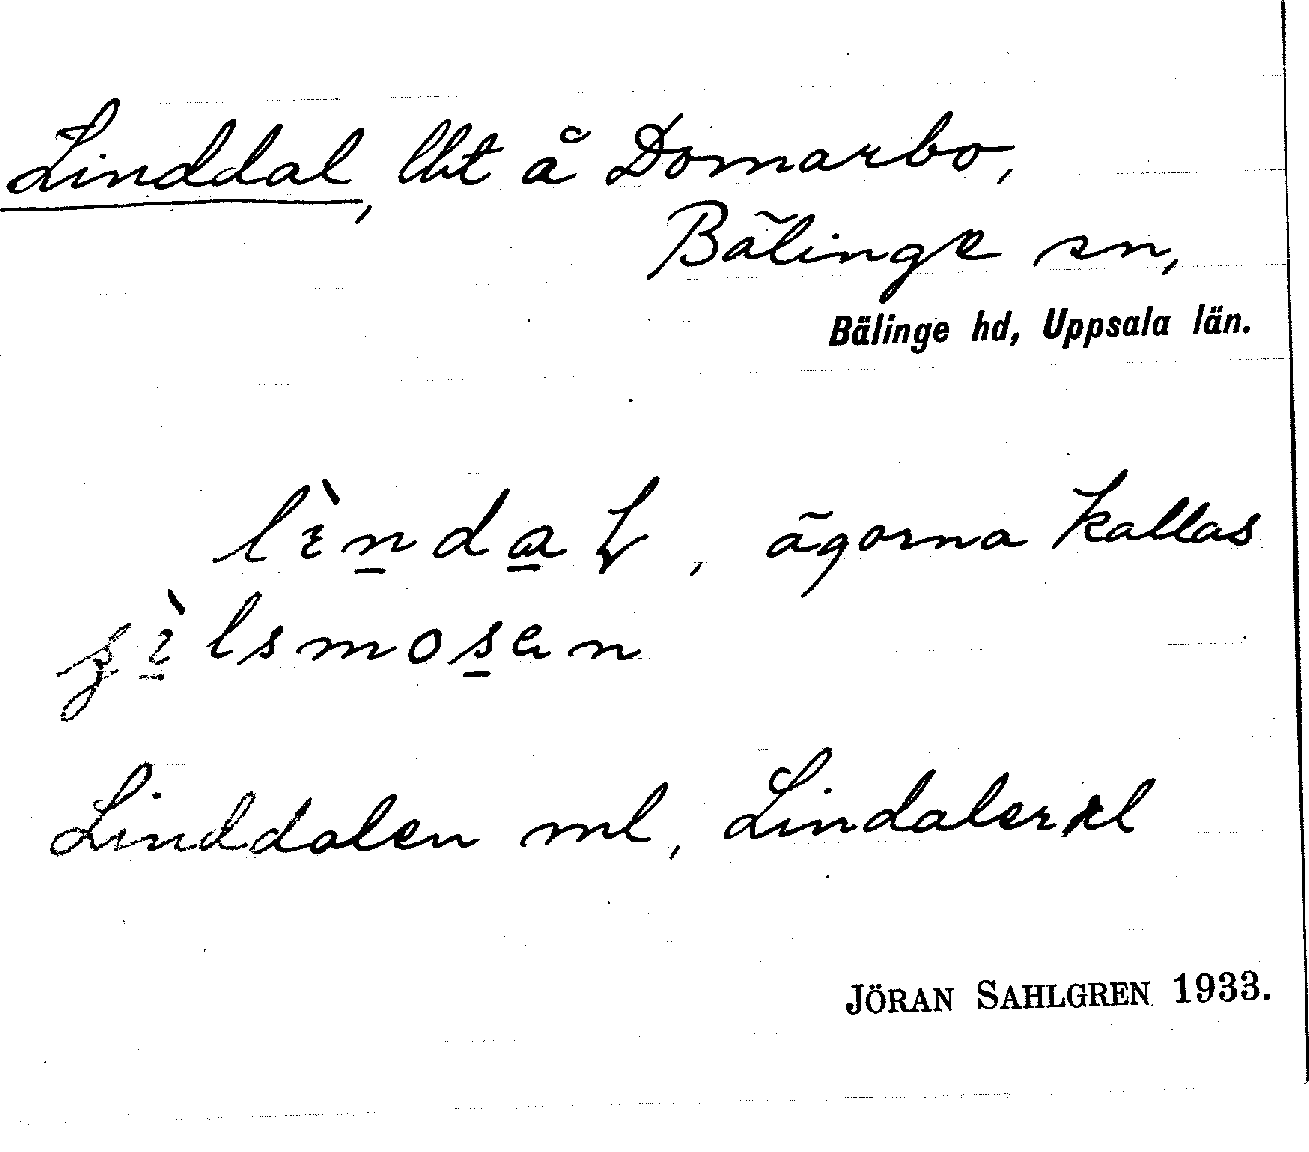 Linddal, lht å Domarbo,
Bälinge sn,
Bälinge hd, Uppsala län.
lìndaL, ägorna kallas
jìlsmosen
Linddalen ml, Lindalen kl
JÖRAN SAHLGREN 1933.